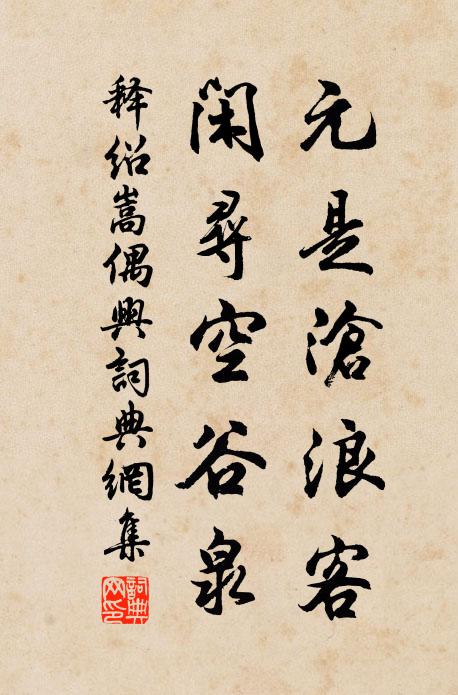 元是滄浪客
閑尋空谷泉
释紹嵩偶興詞典網集
詞典网印